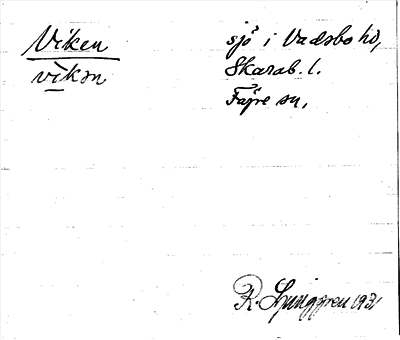 Viken
vìkən
sjö i Vadsbo hd,
Skarab. l.
Fägre sn.
R. Ljunggren 1931